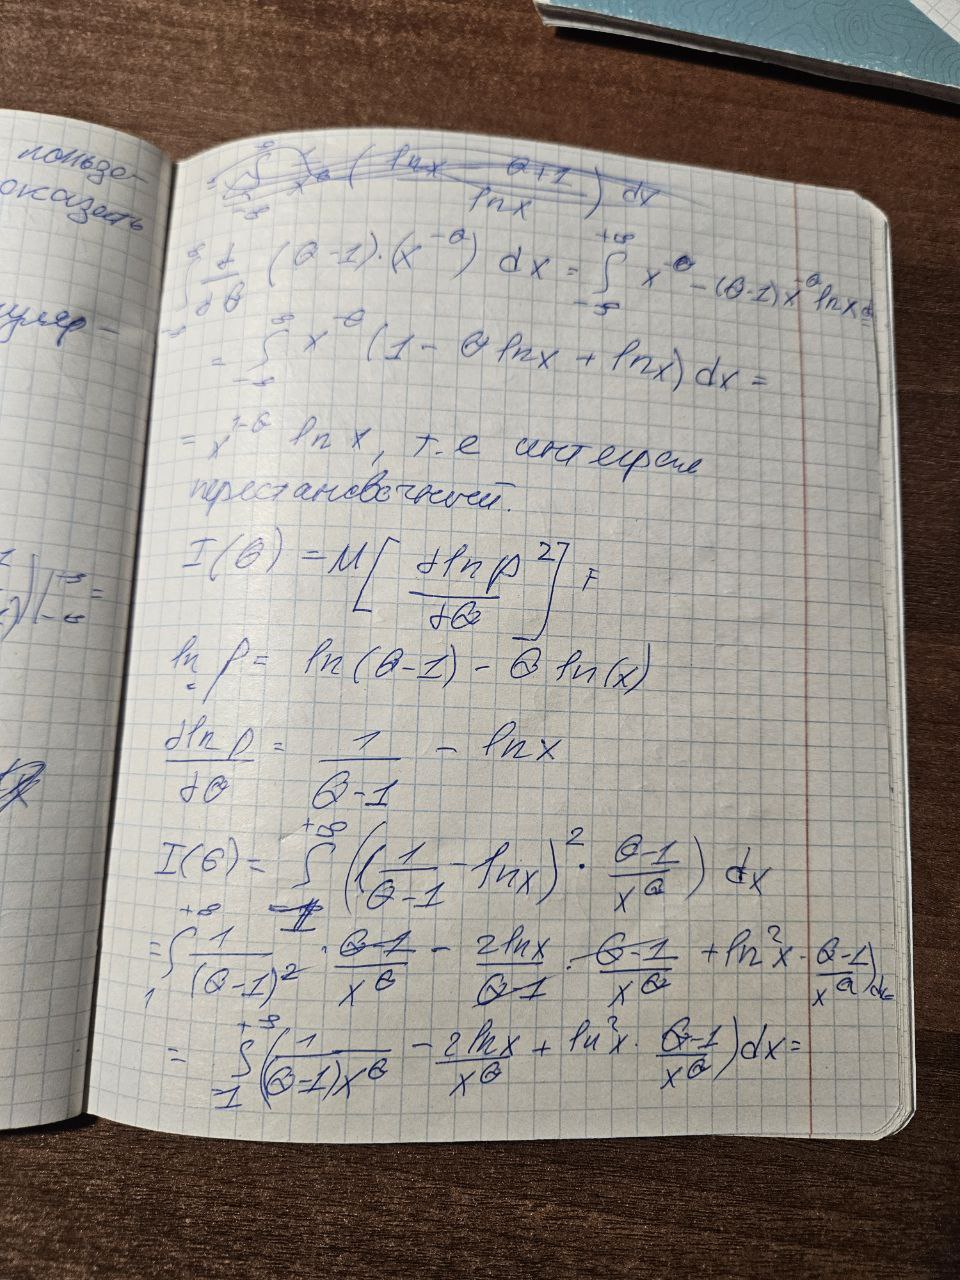 пользо-
оказать
= ∫_{-∞}^{∞} x^θ (lnx - θ+1 / lnx) dx
∫_{-∞}^{∞} d/dθ (θ-1)·(x^{-θ}) dx = ∫_{-∞}^{+∞} x^{-θ} - (θ-1)x^{-θ} lnx d
= ∫_{-∞}^{∞} x^{-θ} (1 - θ lnx + lnx) dx =
= x^{1-θ} ln x, т.е интеграл
перестановочный.
I(θ) = M[ dlnp/dθ ^2] =
ln p = ln(θ-1) - θ ln(x)
dlnp/dθ = 1/(θ-1) - lnx
I(θ) = ∫_1^{+∞} ((1/(θ-1) - lnx)^2 · (θ-1)/x^θ) dx
= ∫_1^{+∞} 1/(θ-1)^2 · (θ-1)/x^θ - 2lnx/(θ-1) · (θ-1)/x^θ + ln^2x · (θ-1)/x^θ) dx
= ∫_1^{+∞} (1/((θ-1)x^θ) - 2lnx/x^θ + ln^2x · (θ-1)/x^θ) dx =